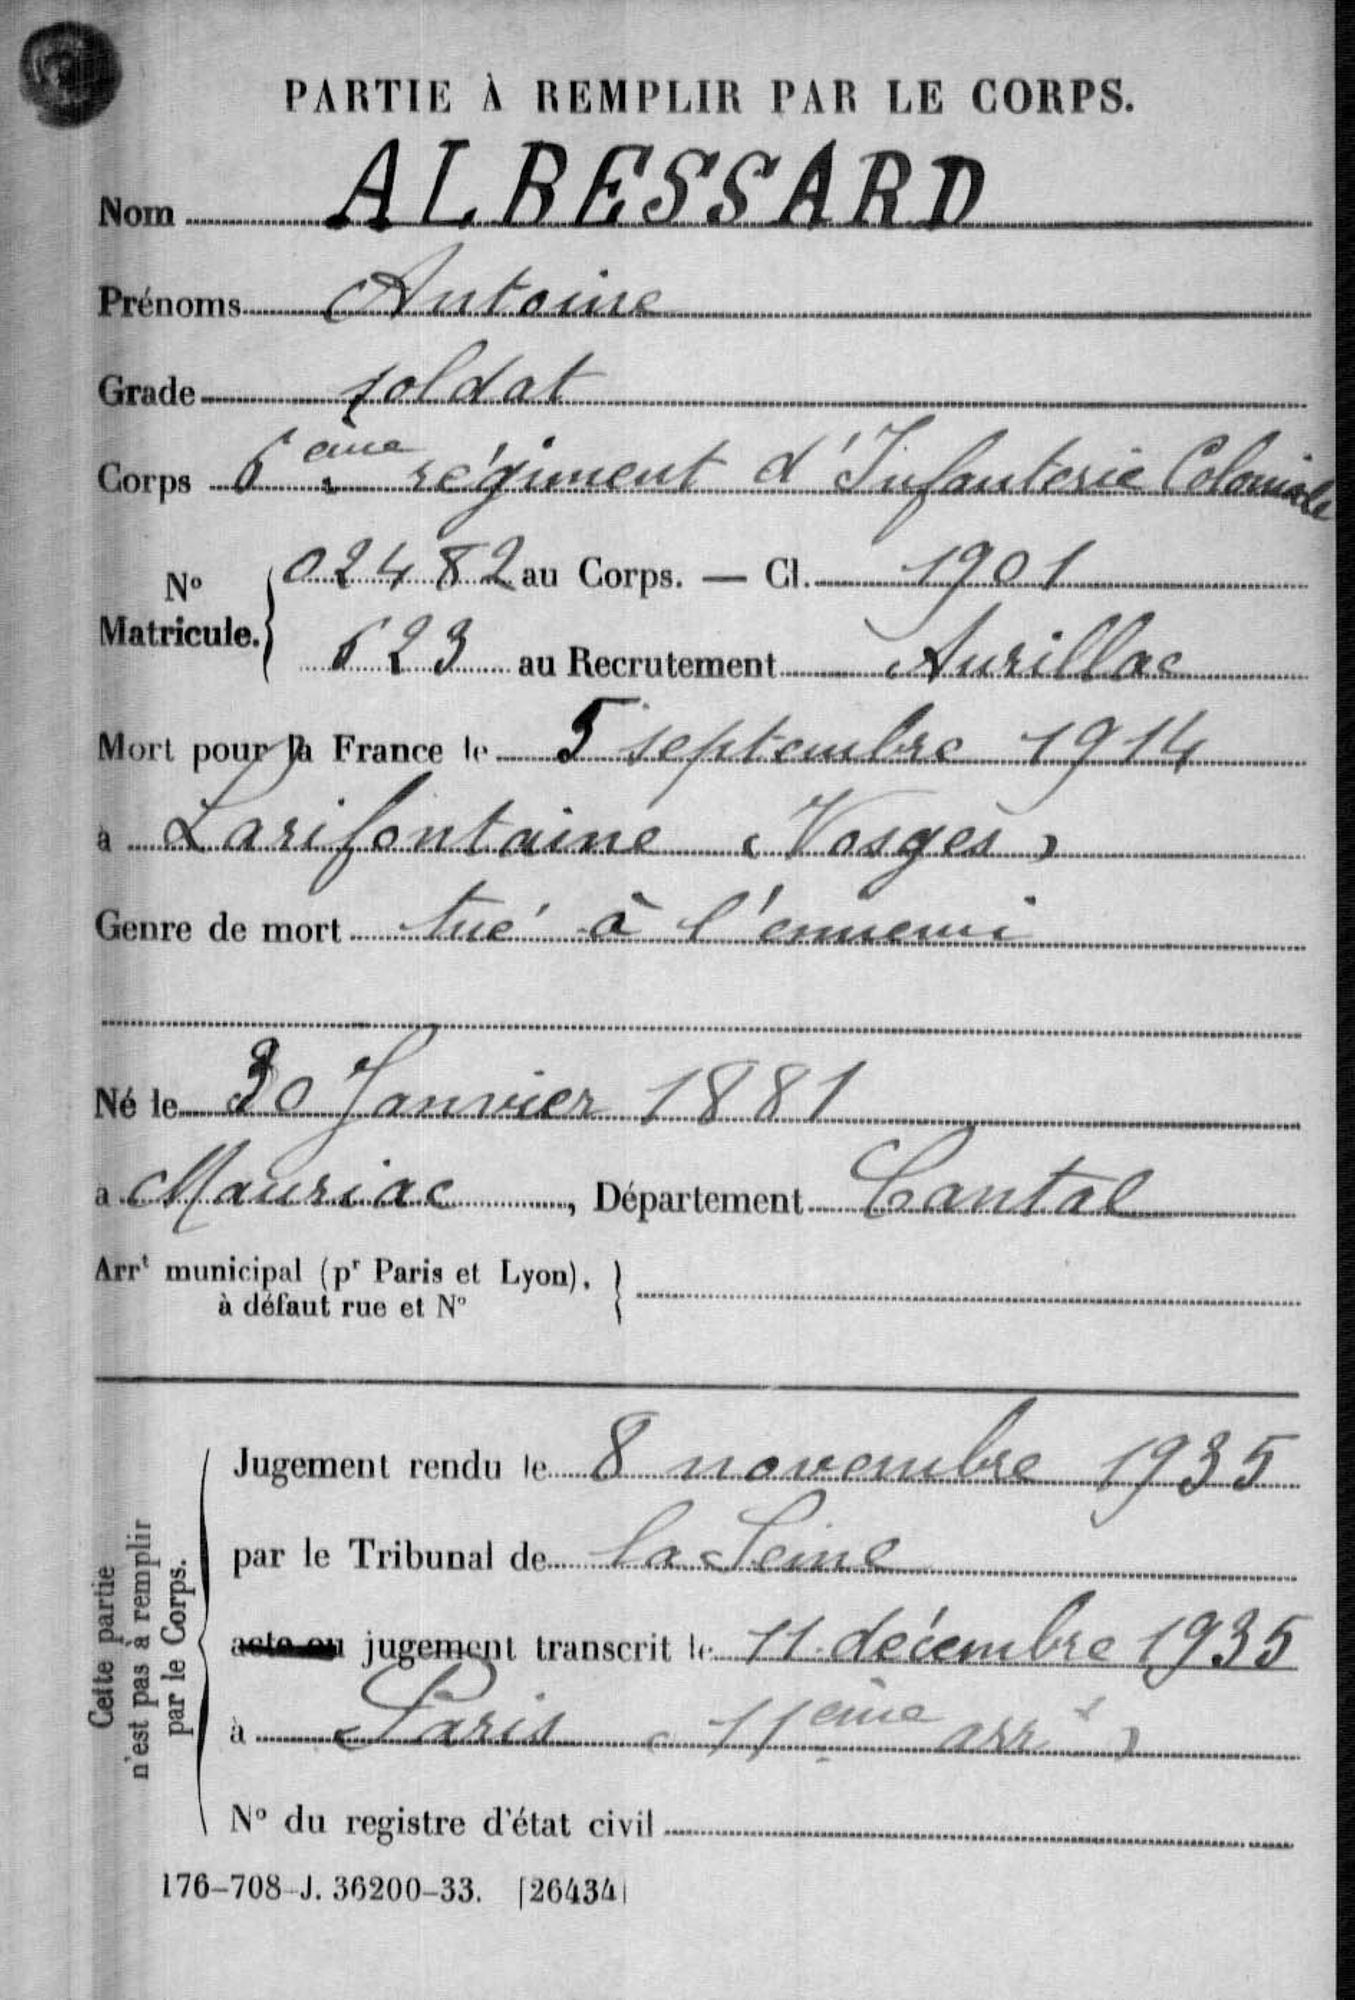 PARTIE À REMPLIR PAR LE CORPS.
Nom ALBESSARD
Prénoms Antoine
Grade soldat
Corps 6ème régiment d'Infanterie Coloniale
No Matricule. 02482 au Corps. — Cl. 1901
623 au Recrutement Aurillac
Mort pour la France le 5 septembre 1914
à Larifontaine (Vosges)
Genre de mort tué à l'ennemi
Né le 30 Janvier 1881
à Mauriac, Département Cantal
Arrt municipal (pr Paris et Lyon),
à défaut rue et No
Cette partie
n'est pas à remplir
par le Corps.
Jugement rendu le 8 novembre 1935
par le Tribunal de la Seine
acte ou jugement transcrit le 11 décembre 1935
à Paris (11ème arrt)
No du registre d'état civil
176-708-J. 36200-33. [26434]